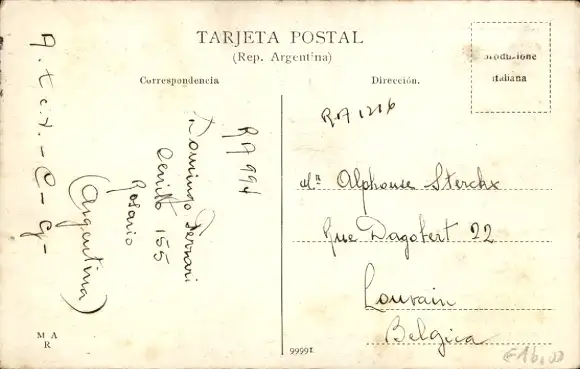 TARJETA POSTAL
(Rep. Argentina)
Correspondencia
Dirección.
Produzione
italiana
RA 1216
RA 994
Domingo Ferrari
Cerrito 155
Rosario
(Argentina)
Mr Alphonse Sterckx
Rue Dagobert 22
Louvain
Belgica
M A
R
99991
€16,00